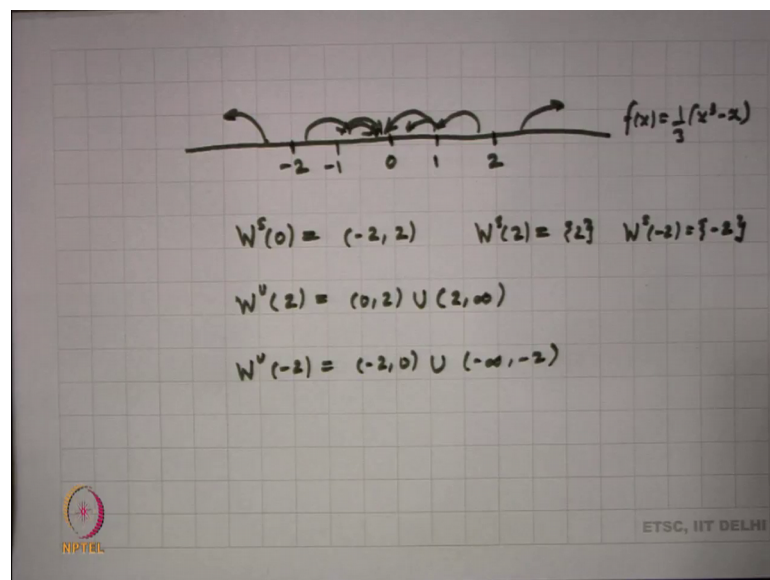 f(x) = 1/3 (x³-x)
-2 -1 0 1 2
Wˢ(0) = (-2, 2) Wˢ(2) = {2} Wˢ(-2) = {-2}
Wᵁ(2) = (0, 2) ∪ (2, ∞)
Wᵁ(-2) = (-2, 0) ∪ (-∞, -2)
NPTEL
ETSC, IIT DELHI